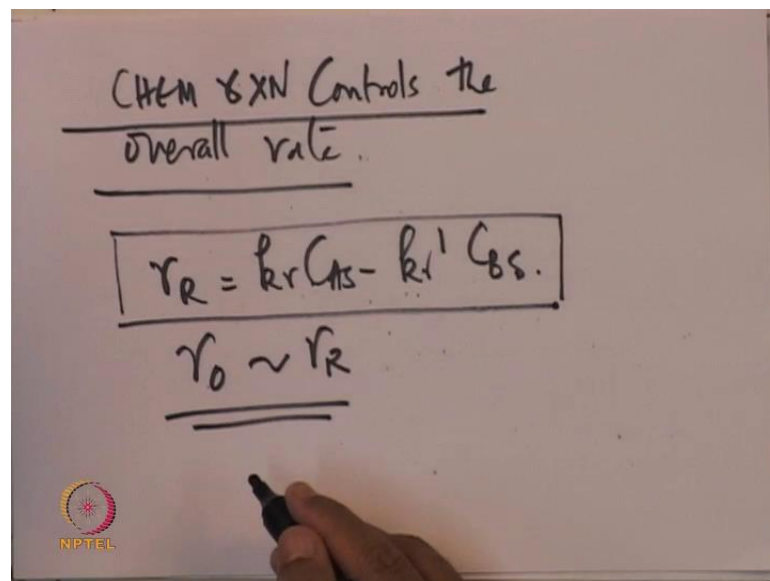 CHEM RXN Controls the
overall rate.
r_R = k_r C_AS - k_r' C_BS.
r_0 ~ r_R
NPTEL